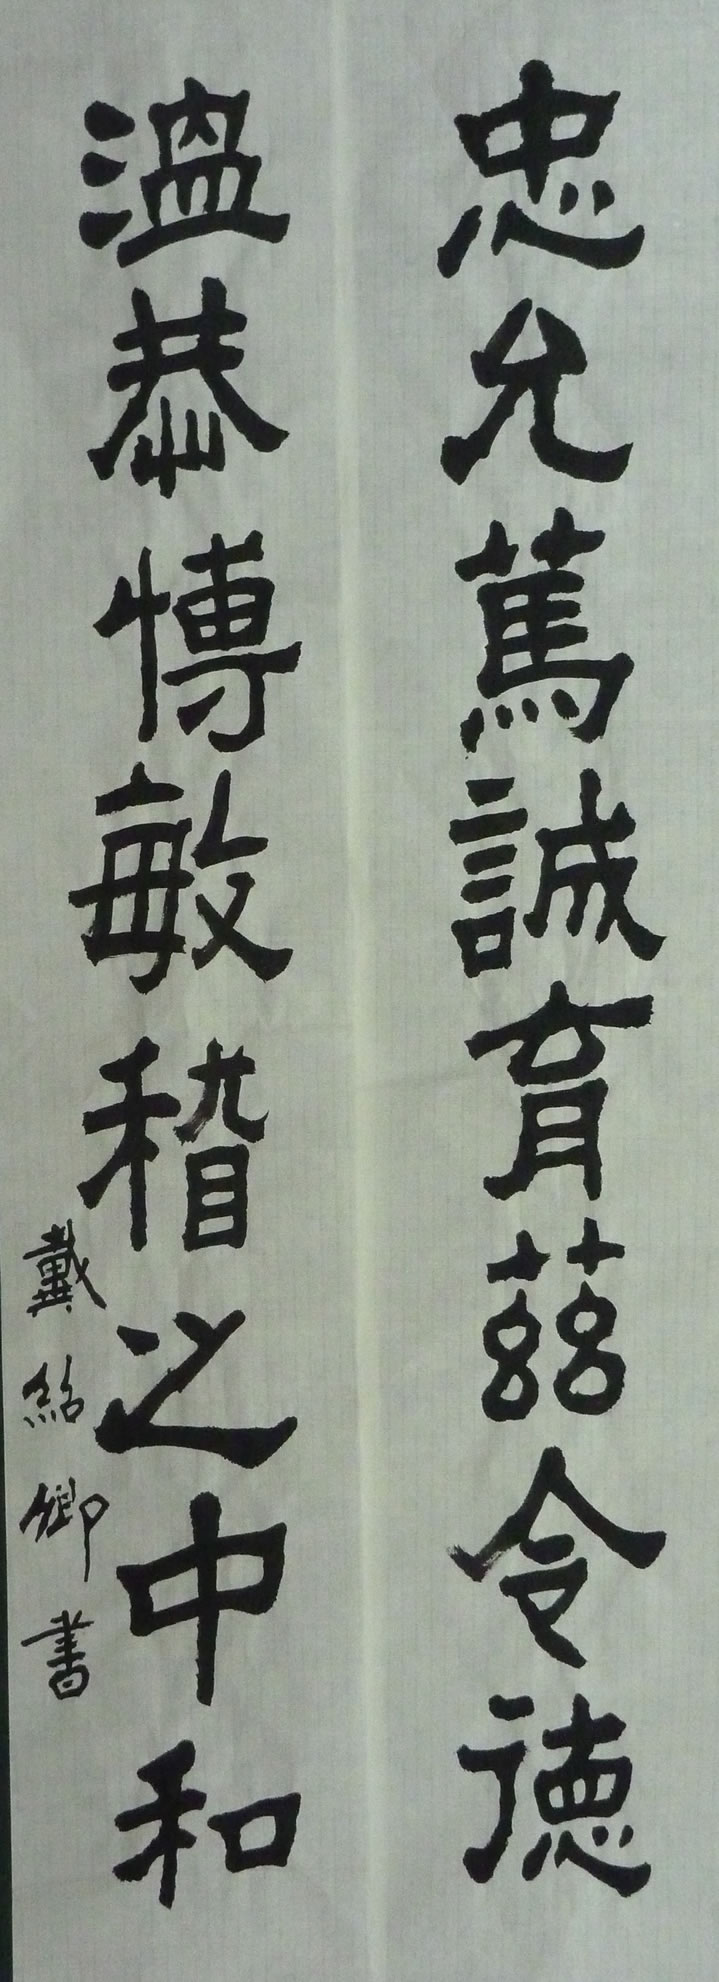 忠允篤誠育茲令德
溫恭愽敏稽之中和
戴紹卿書